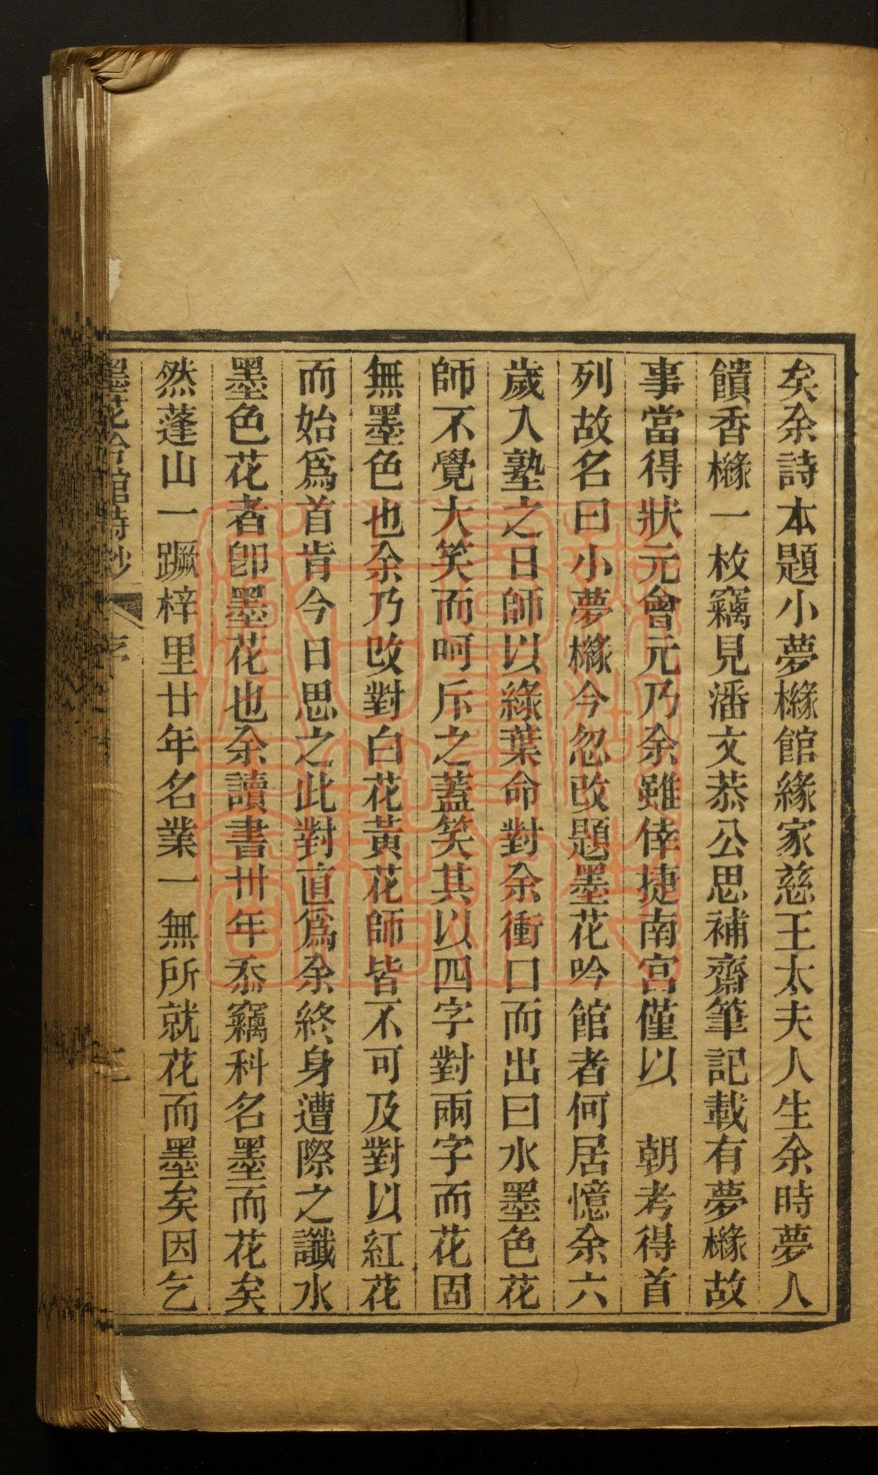 矣余詩本題小夢櫞館緣家慈王太夫人生余時夢人
饋香櫞一枚竊見潘文恭公思補齋筆記載有夢櫞故
事當得狀元會元乃余雖倖捷南宮僅以　朝考得首
列故名曰小夢櫞今忽改題墨花吟館者何居憶余六
歲入塾之日師以綠葉命對余衝口而出曰水墨色花
師不覺大笑而呵斥之蓋笑其以四字對兩字而花固
無墨色也余乃改對白花黃花師皆不可及對以紅花
而始爲首肯今日思之此對直爲余終身遭際之讖水
墨色花者卽墨花也余讀書卅年忝竊科名墨而花矣
然蓬山一蹶梓里廿年名業一無所就花而墨矣因乞
墨花吟館詩鈔　序　二